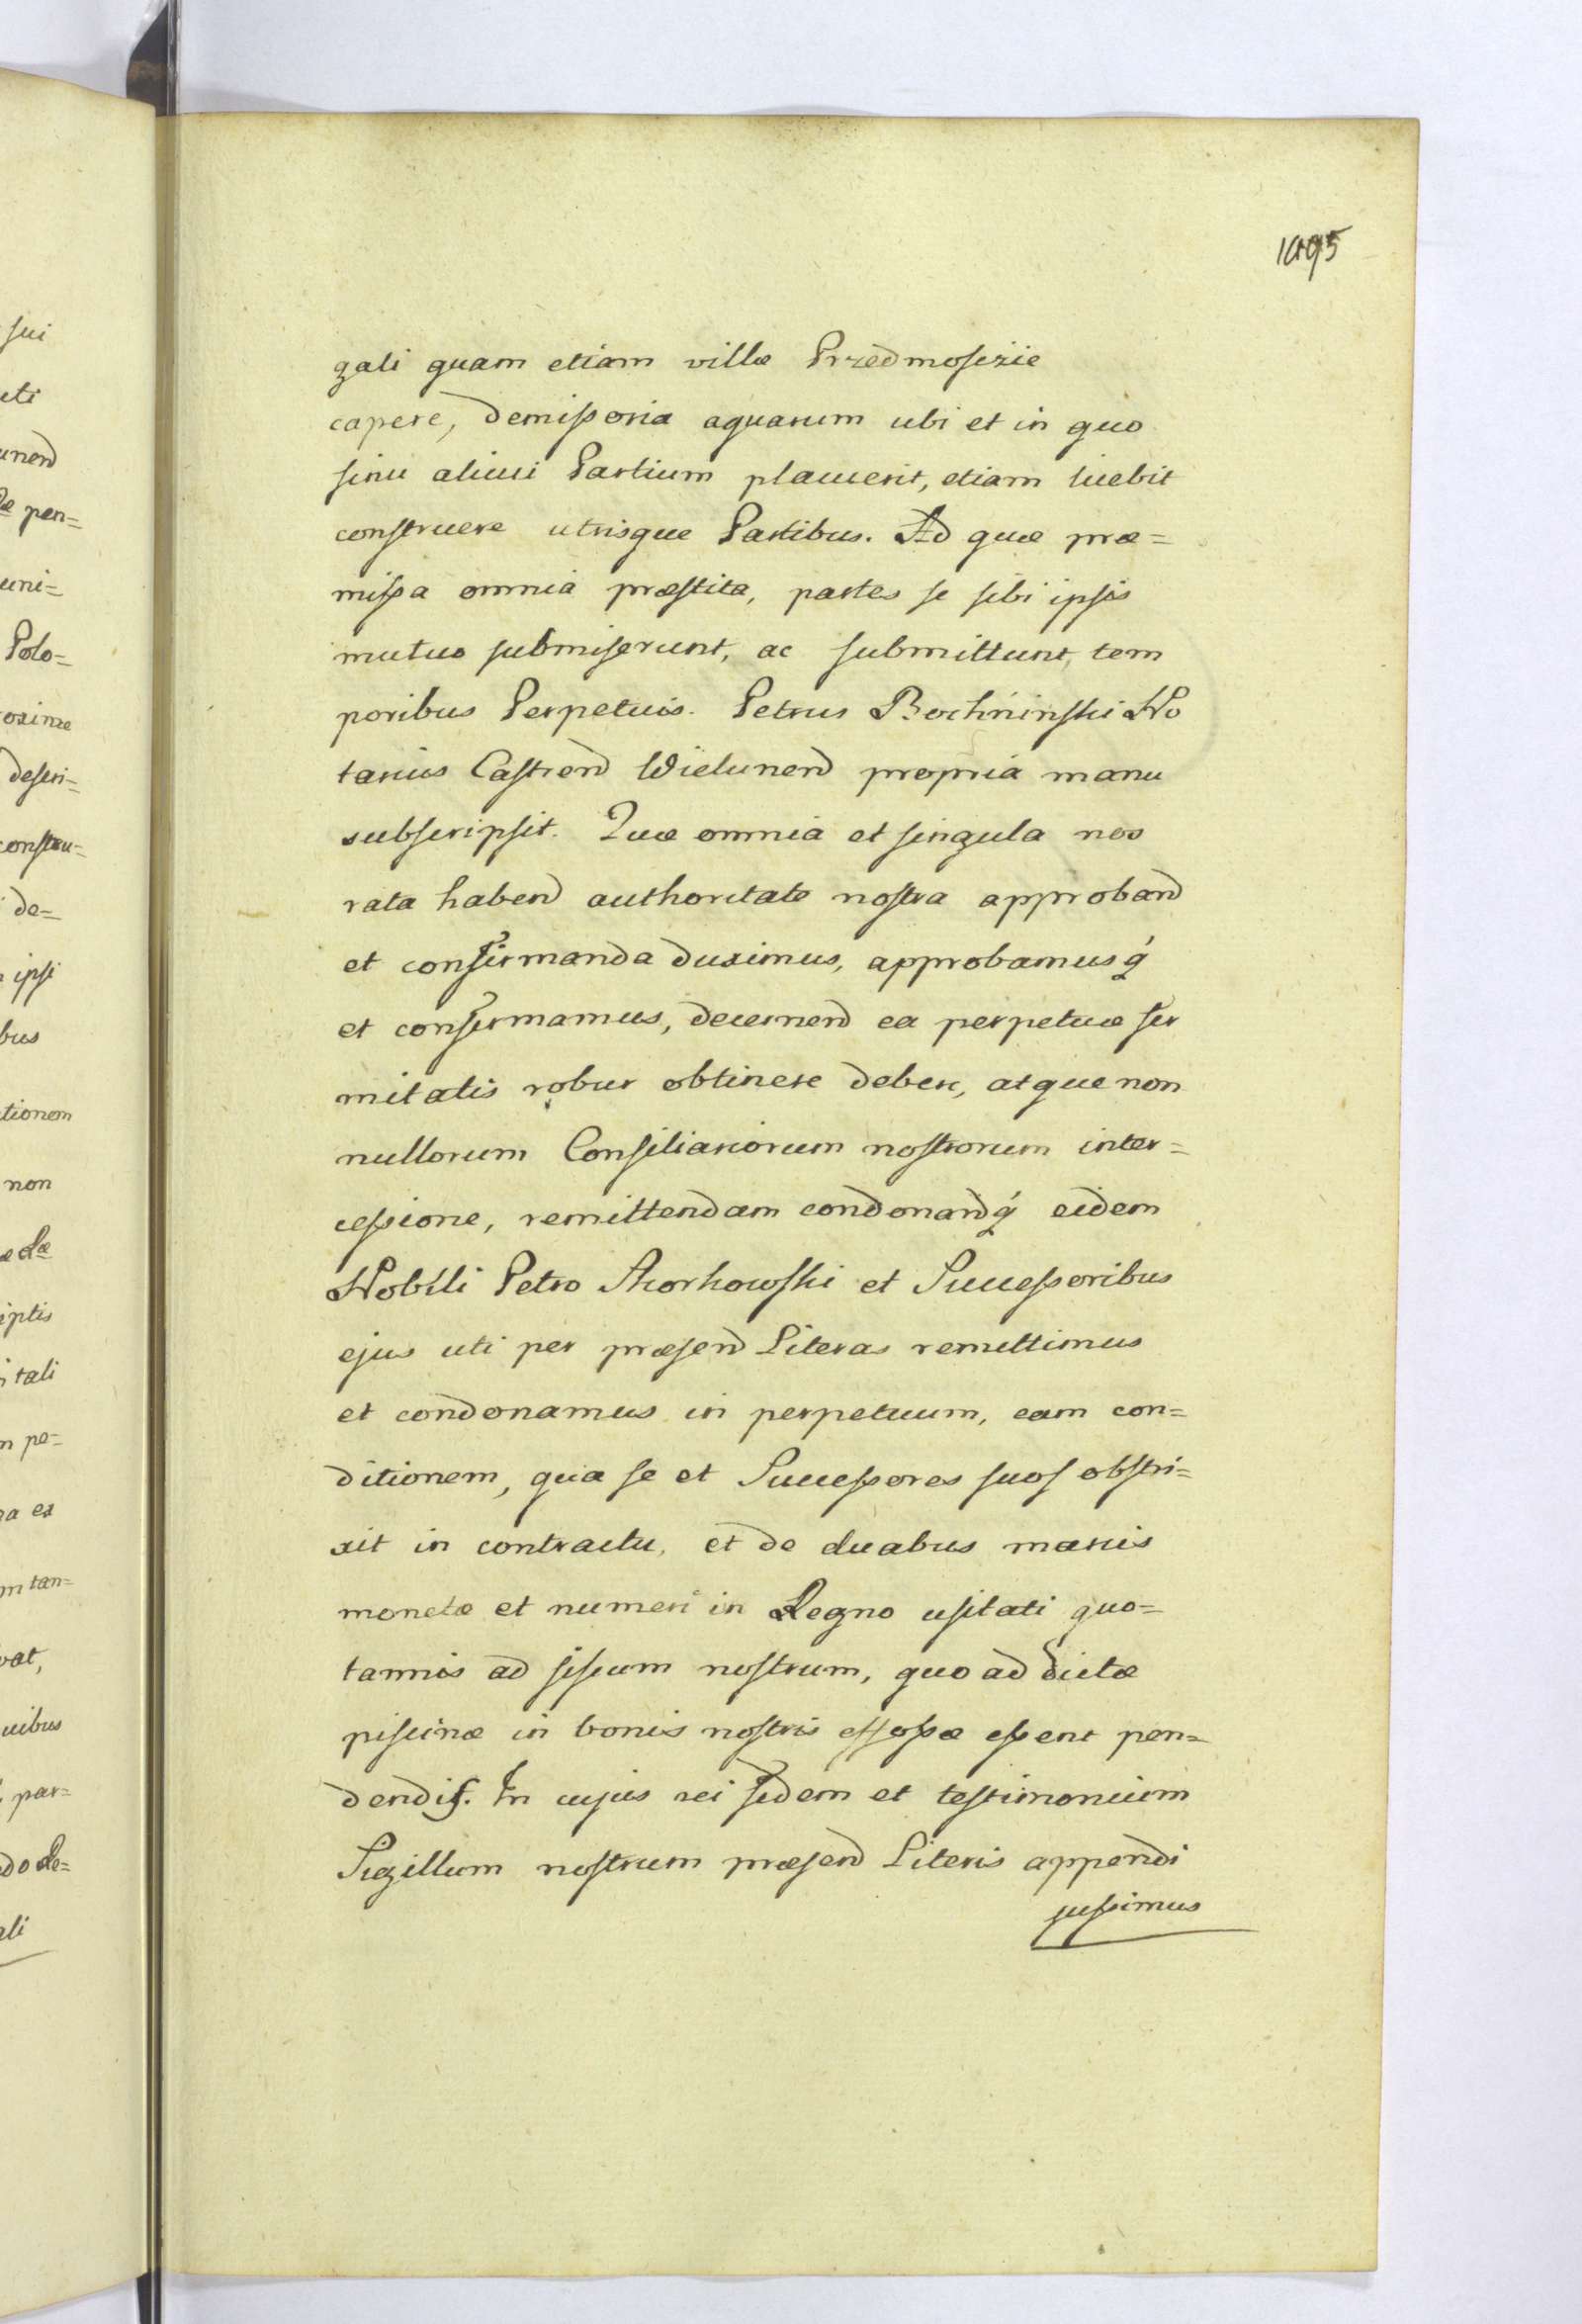 1095
gali quam etiam villæ Przedmoscie
capere, demissoria aquarum ubi et in quo
sinu alicui Partium placuerit, etiam licebit
construere utrisque Partibus. Ad quæ præ=
missa omnia præstita, partes se sibi ipsis
mutuo submiserunt, ac submittunt, tem
poribus Perpetuis. Petrus Bochninski No
tarius Castren Wielunen propria manu
subscripsit. Quæ omnia et singula nos
rata haben authoritate nostra approban
et confirmanda duximus, approbamusq
et confirmamus, decernen ea perpetuæ fir
mitatis robur obtinere debere, atque non
nullorum Consiliariorum nostrorum inter=
cessione, remittendam condonandq eidem
Nobili Petro et Successoribus
ejus uti per præsen Literas remittimus
et condonamus in perpetuum, eam con=
ditionem, qua se et Successores suos obstri=
xit in contractu, et de duabus marcis
monetæ et numeri in Regno usitati quo=
tannis ad fiscum nostrum, quo ad dictæ
piscinæ in bonis nostris effossæ essent pen=
dendis. In cujus rei fidem et testimonium
Sigillum nostrum præsen Literis appendi
jussimus
sui
uti
unen
pen=
uni=
Polo=
oxime
descri=
constru=
de=
ipsi
bus
tionem
non
iptis
tali
pe=
ex
tan=
vat,
uibus
par=
do de=
ali